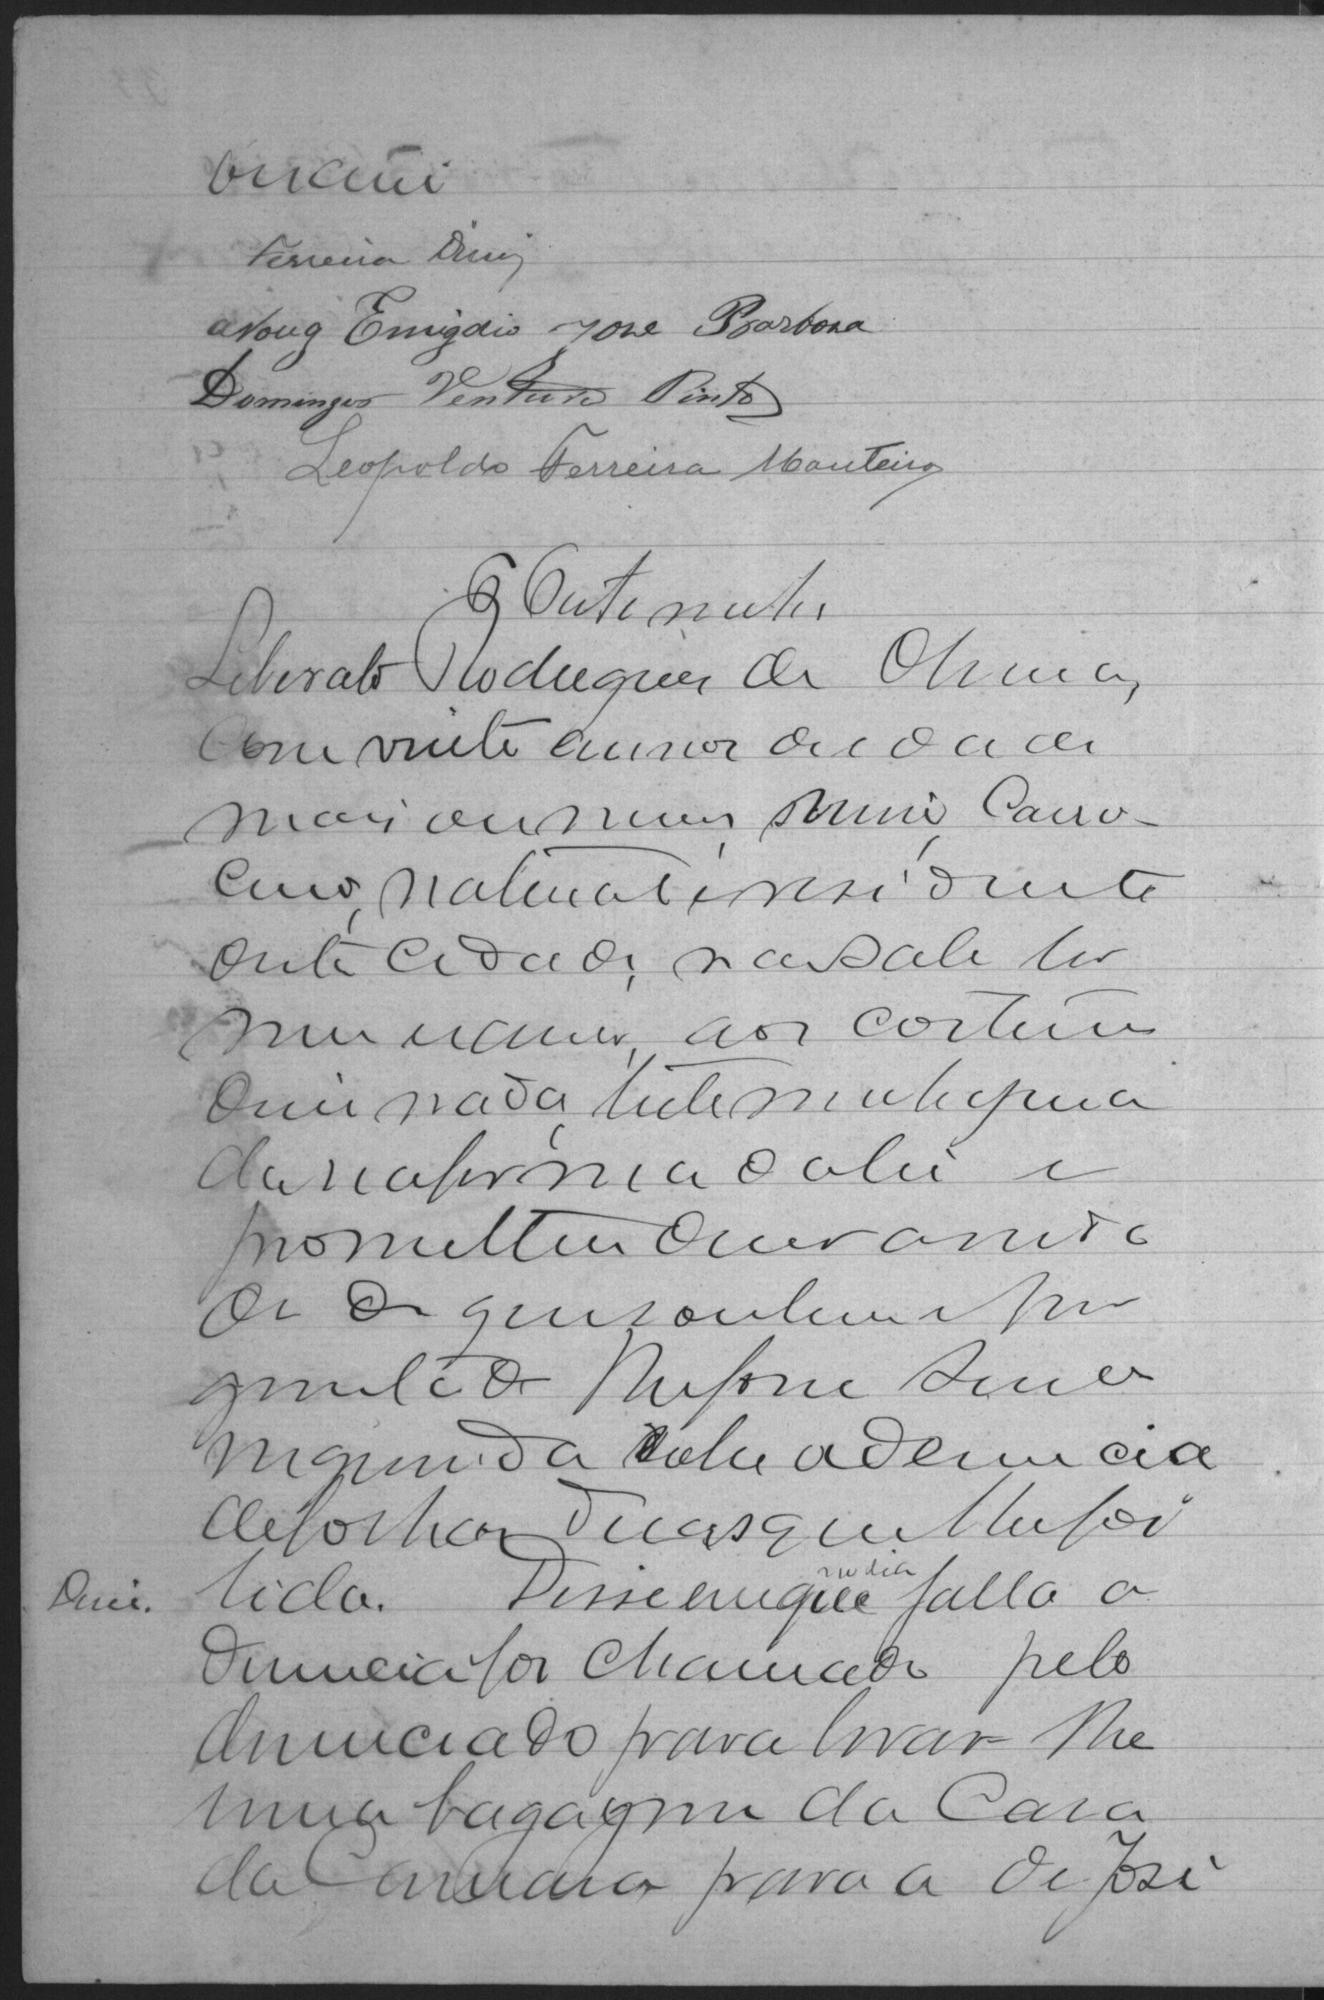 escrevi
Ferreira Diniz
arôug Emigdio Jose Barbosa
Domingos Ventura Pinto
Leopoldo Ferreira Monteiro
6ª Testemunha
Liberato Rodrigues de Oliveira,
com vinte annos de idade
mais ou menos, Carro-
ceiro, natural e residente
desta cidade, não sabe ler
nem escrever, aos costumes
disse nada, testemunha jura
da na forma da lei e
prometteu dizer a verda
de do que soubesse e per
guntado lhe fosse. Sendo
inquirida sobre a denuncia
de folhas duas que lhe foi
Disse. lida. Disse que no dia falla a
denuncia foi chamado pelo
denunciado para levar lhe
uma bagagem da Casa
da Camara para a de José